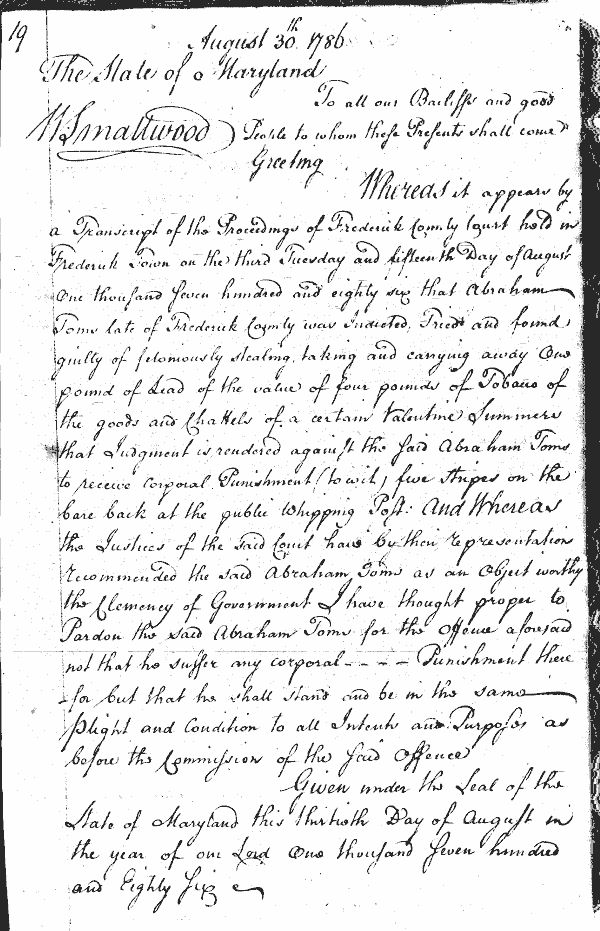 19
August 30th 1786
The State of Maryland
To all our Bailiffs and good
W Smallwood) People to whom these Presents shall come
Greeting
Whereas it appears by
a Transcript of the Proceedings of Frederick County Court held in
Frederick Town on the third Tuesday and fifteenth Day of August
One thousand Seven hundred and eighty six that Abraham
Toms late of Frederick County was Indicted, Tried and found
guilty of feloniously stealing, taking and carrying away One
pound of Lead of the value of four pounds of Tobacco of
the goods and Chattels of a certain Valentine Summers
that Judgment is rendered against the said Abraham Toms
to receive corporal Punishment (to wit) five stripes on the
bare back at the public Whipping Post: And Whereas
the Justices of the said Court have by their representation
recommended the said Abraham Toms as an Object worthy
the Clemency of Government I have thought proper to
Pardon the said Abraham Toms for the Offence aforesaid
not that he suffer any corporal - - - - Punishment there
-for but that he shall stand and be in the same
plight and Condition to all Intents and Purposes as
before the Commission of the said Offence
Given under the Seal of the
State of Maryland this thirtieth Day of August in
the year of our Lord One thousand Seven hundred
and Eighty Six